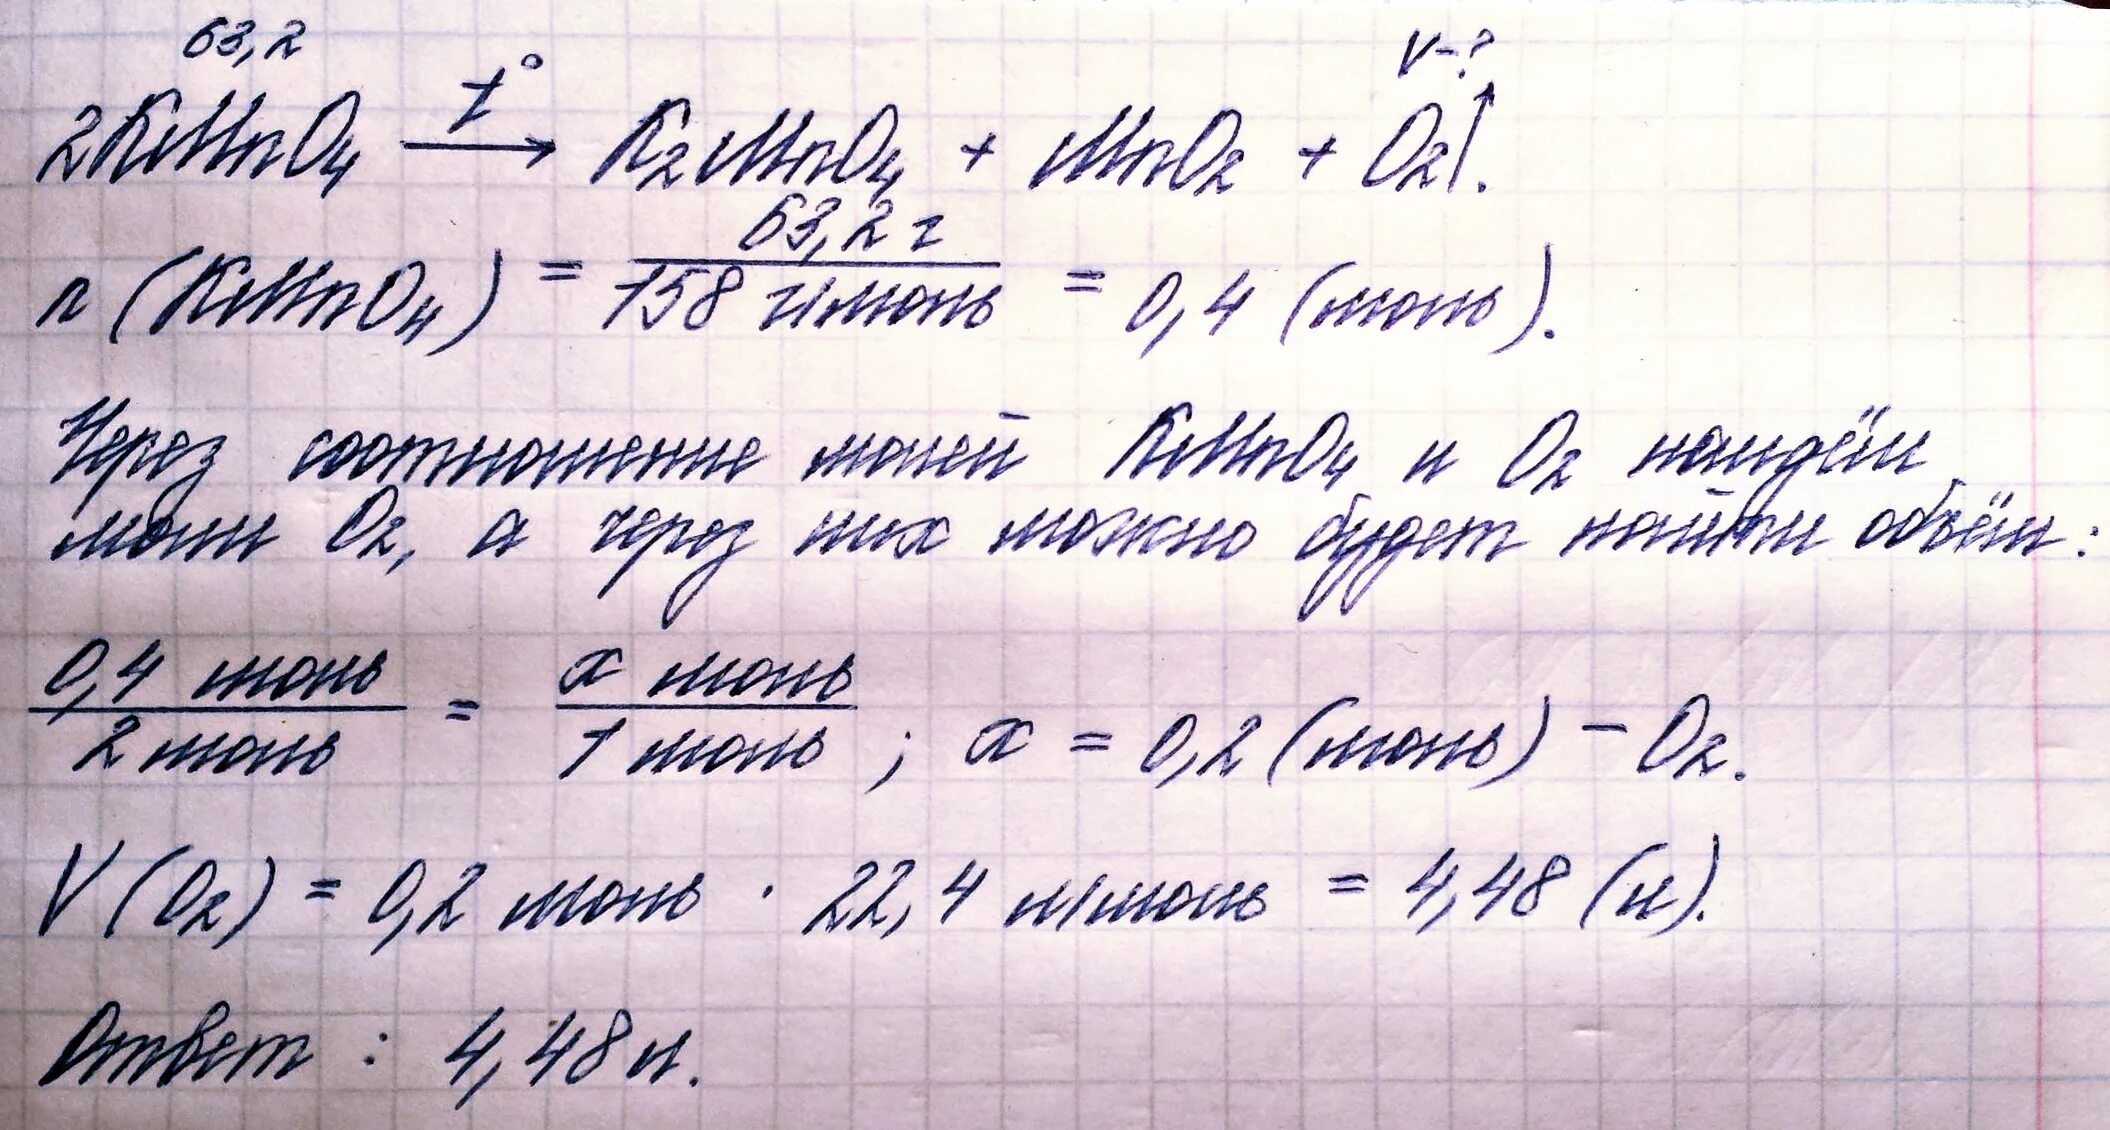 63,2 V-?
2KMnO₄ t° → K₂MnO₄ + MnO₂ + O₂↑.
n (KMnO₄) = 63,2 г / 158 г/моль = 0,4 (моль).
Через соотношение молей KMnO₄ и O₂ найдём
моли O₂, а через них можно будет найти объём:
0,4 моль / 2 моль = x моль / 1 моль ; x = 0,2 (моль) – O₂.
V (O₂) = 0,2 моль · 22,4 л/моль = 4,48 (л).
Ответ : 4,48 л.